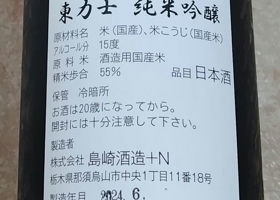 東力士 純米吟醸
原材料名 米(国産)、米こうじ(国産米)
アルコール分 15度
原料米 酒造用国産米
精米歩合 55% 品目 日本酒
保管 冷暗所
お酒は20歳になってから。
開封には十分注意して下さい。
製造者
株式会社 島崎酒造+N
栃木県那須烏山市中央1丁目11番18号
製造年月 2024.6.